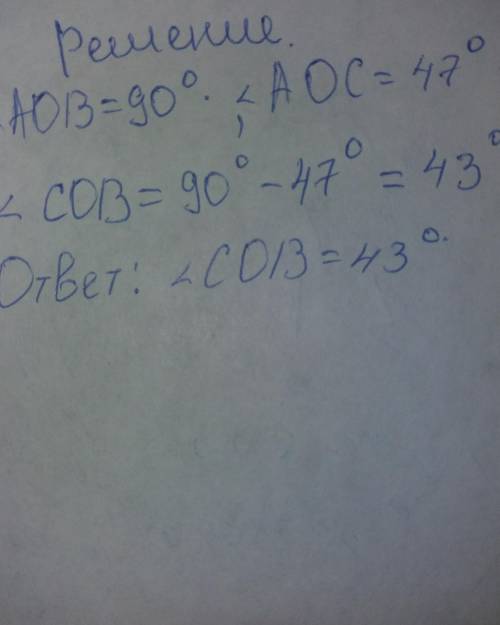 Решение.
∠AOB=90°. ∠AOC=47°
∠COB=90°-47°=43°
Ответ: ∠COB=43°.